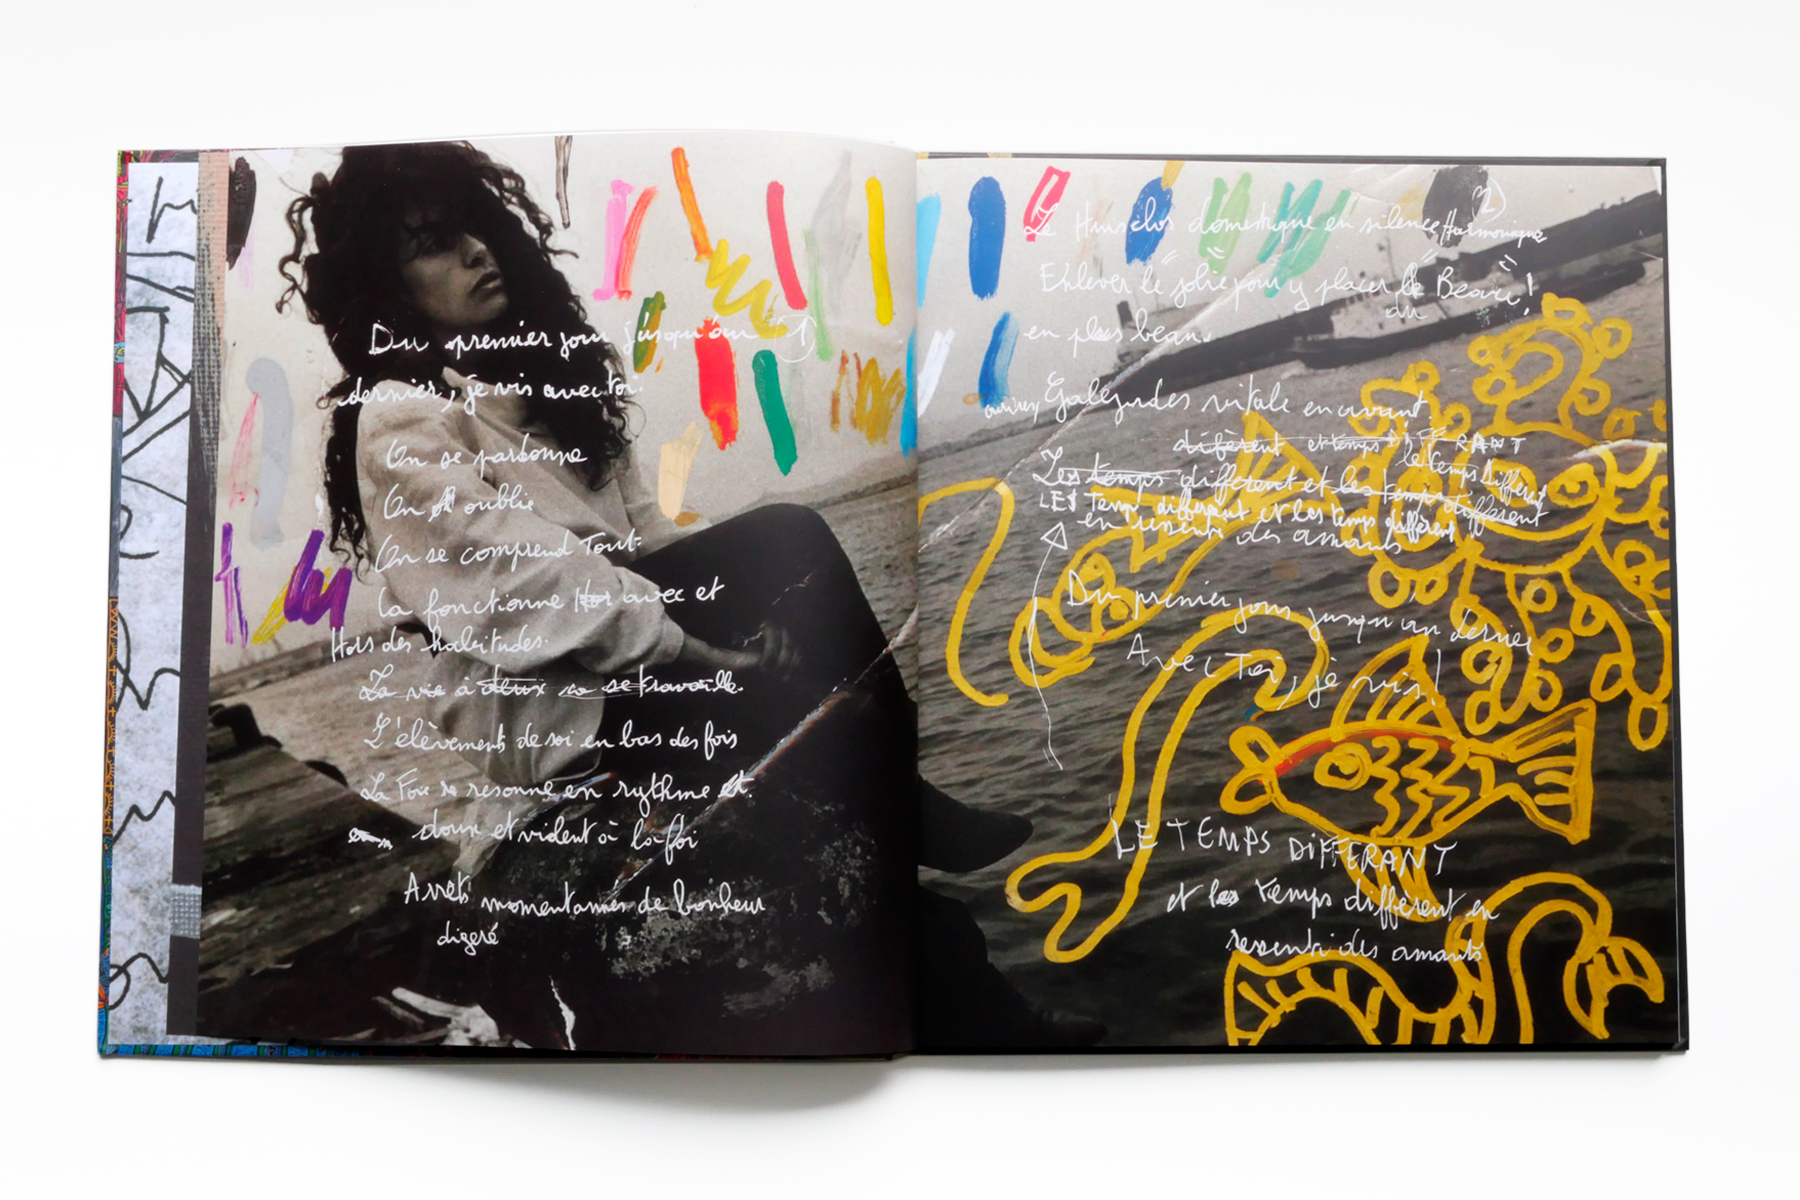 Du premier jour jusqu'au 1
dernier, je vis avec toi.
On se pardonne
On oublie
On se comprend Tout.
ça fonctionne Hors avec et
Hors des habitudes.
La vie à deux ça se travaille.
L'élèvements de soi en bas des fois
La Foie se resonne en rythme et.
doux et vident à la foi
Arrêts momentannés de bonheur
digeré
2
Le Huisclos domestique en silence Harmonique
Enlever le "jolie" pour y placer le "Beau"!
du
en plus beau.
Galezardes vitale en avant.
différent et temps DIFFERANT
Les temps différent et les temps différent
le temps Différent
LES Temps différent et les temps différent
en resenti des amants
Du premier jour jusqu'au dernier
Avec Toi, je vis!
LE TEMPS DiFFERANT
et les temps différent en
ressenti des amants